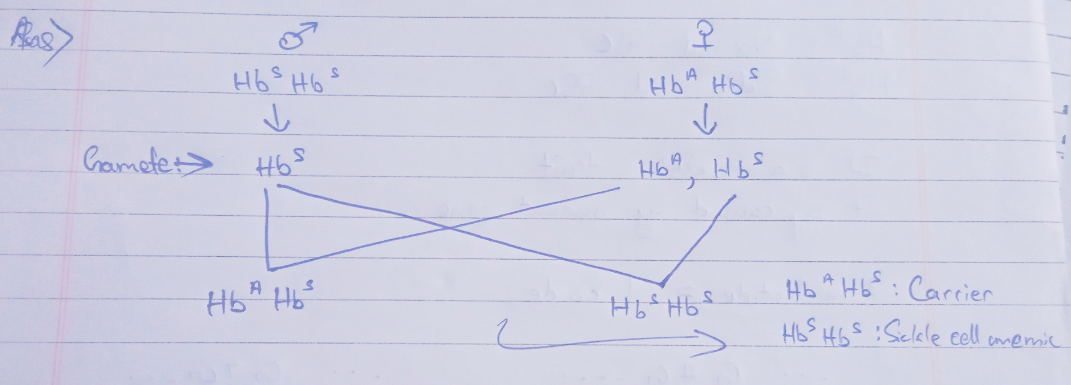 ♂ ♀
Hb^S Hb^S Hb^A Hb^S
Gamete: → Hb^S Hb^A, Hb^S
Hb^A Hb^S Hb^S Hb^S
Hb^A Hb^S : Carrier
Hb^S Hb^S : Sickle cell anemic